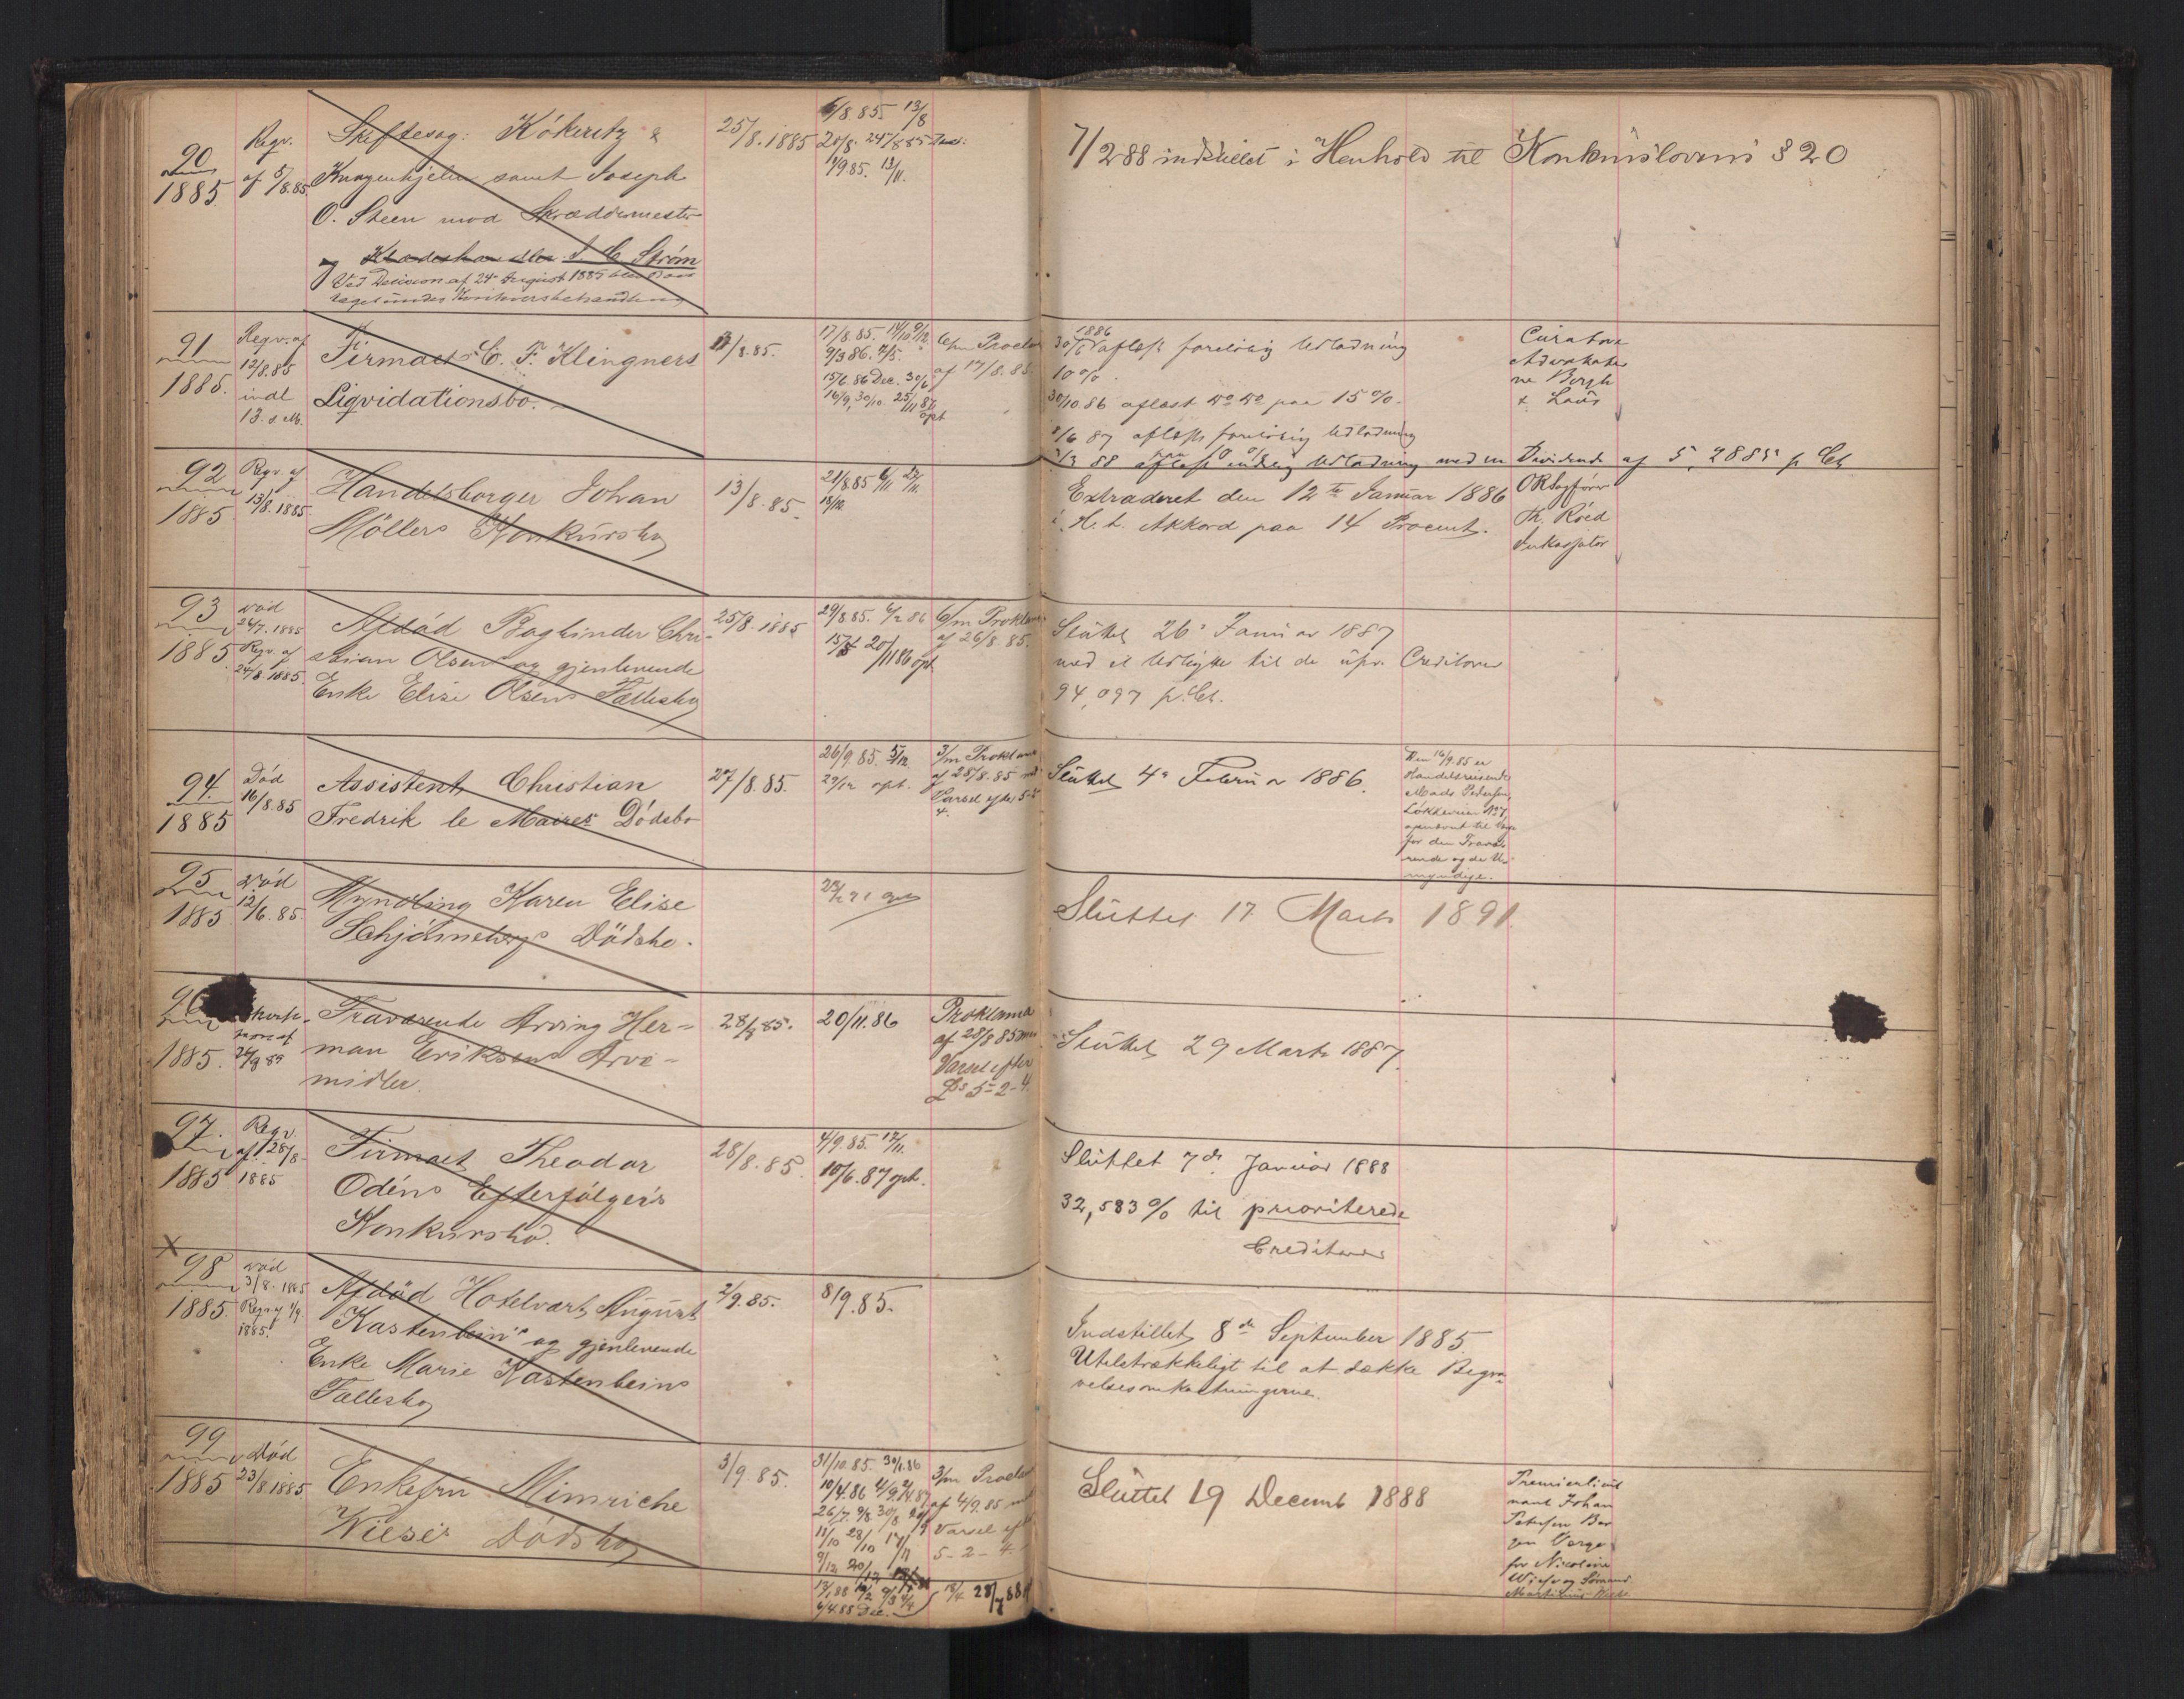 90
1885
Regv.
af 5/8.85
Skiftesag: Kökeritz &
Knagenhjelm samt Joseph
O. Steen mod Skræddermester
og Klædeshandler J. C. Strøm
Ved Decision af 24de August 1885 blev Boet
taget under Konkursbehandling
25/8.1885
6/8 85 13/8
20/8. 24/8 85
11/9.85. 13/11.
7/2 88 indstillet i Henhold til Konkurslovens § 20
91
1885.
Regv. af
12/8.85
indl
13. s. M.
Firmaet C. F. Klingners
Liqvidationsbo.
17/8.85.
17/8.85. 14/10 9/12.
9/3 86. 4/5.
15/6.86 Dec. 30/6
16/9, 30/10 25/11 87
opt
6/m Procla
af 17/8.85
1886
30/6 aflæst foreløbig Udlodning
10 %.
30/10.86 aflæst do do paa 15 %.
8/6 87 aflæst foreløbig Udlodning
paa 10 %
1/3 88 aflæst endelig Udlodning med en Dividende af 5,2885 p Ct
Curatorer
Advokater
ne Bergh
& Laus
92
1885
Regv. af
13/8.1885
Handelsborger Johan
Möllers Konkursbo
13/8.85.
21/8.85 6/11 27/11.
18/12.
Extraderet den 12te Januar 1886
i H. t. Akkord paa 14 Procent.
ORSagfører
Th. Röed
Inkassator
93
1885
Død
26/7.1885
Regv. af
24/8 1885.
Afdød Bogbinder Chri-
stian Olsens og gjenlevende
Enke Elise Olsens Fællesbo
25/8.1885
29/8 85. 6/2 86
15/5 20/11 86 opt
6/m Proklama
af 26/8.85.
Sluttet 26de Januar 1887
med et Udbytte til de upr. Creditorer
94,097 p. Ct.
94.
1885
Død
16/8.85
Assistent Christian
Fredrik le Maires Dödsbo
27/8.85.
26/9.85. 5/12
29/12 opt.
3/m Proklama
af 28/8.85 med
Varsel efter 5-2
4.
Sluttet 4de Februar 1886.
Den 16/9.85 er
Handelsreisende
Mads Pedersen,
Løkkeveien No 7,
opnævnt til Værge
for den Fravæ-
rende og de U-
myndige.
95
1885
Død
12/6.85
Myndling Karen Elise
Schjönnebergs Dödsbo.
Sluttet 17. Marts 1891.
96
1885.
26/8 85
Fraværende Arving Her-
man Eriksens Arve-
midler.
28/8 85.
20/11.86
Proklama
af 28/8 85 med
Varsel efter
Ls 5-2-4.
Sluttet 29 Marts 1887.
97.
1885
Regv.
af 28/8
1885
Firmaet Theodor
Odéns Efterfölgers
Konkursbo.
28/8.85.
4/9.85. 17/11.
10/6.87 opt.
Sluttet 7de Januar 1888
32,583 % til prioriterede
Creditorer
X
98
1885.
Død
3/8.1885
Regv. af 1/9
1885.
Afdöd Hotelvært August
Kastenbein's og gjenlevende
Enke Marie Kastenbeins
Fællesbo
2/9.85.
8/9.85.
Indstillet 8de September 1885.
Utilstrækkeligt til at dække Begra-
velsesomkostningerne.
99
1885
Død
23/8 1885
Enkefru Minriche
Wieses Dödsbo
3/9.85.
31/10.85. 30/1.86
10/4.86
26/7. 9/8 30/8
13/10 28/10 17/11
9/12 20/12
6/4.88 Dec.
3/m Procla
af 4/9.85 med
Varsel eft
5-2-4.
Sluttet 19 Decemb 1888
Premierlieut
nant Johan
Petersen Ber
gen Værge
for Nicoline
Wiese og
Wiese